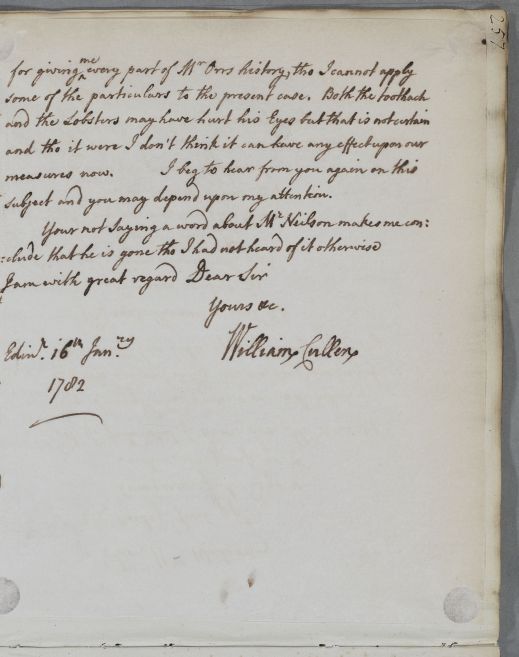 257
for giving me every part of Mr Orrs history, tho I cannot apply
some of the particulars to the present case. Both the toothach
and the Lobsters may have hurt his Eyes but that is not certain
and tho it were I don't think it can have any effect upon our
measures now. I beg to hear from you again on this
subject and you may depend upon my attention.
Your not saying a word about Mr Neilson makes me con:
:clude that he is gone tho I had not heard of it otherwise
I am with great regard Dear Sir
Yours &c.
William Cullen
Edinr. 16th Janry
1782